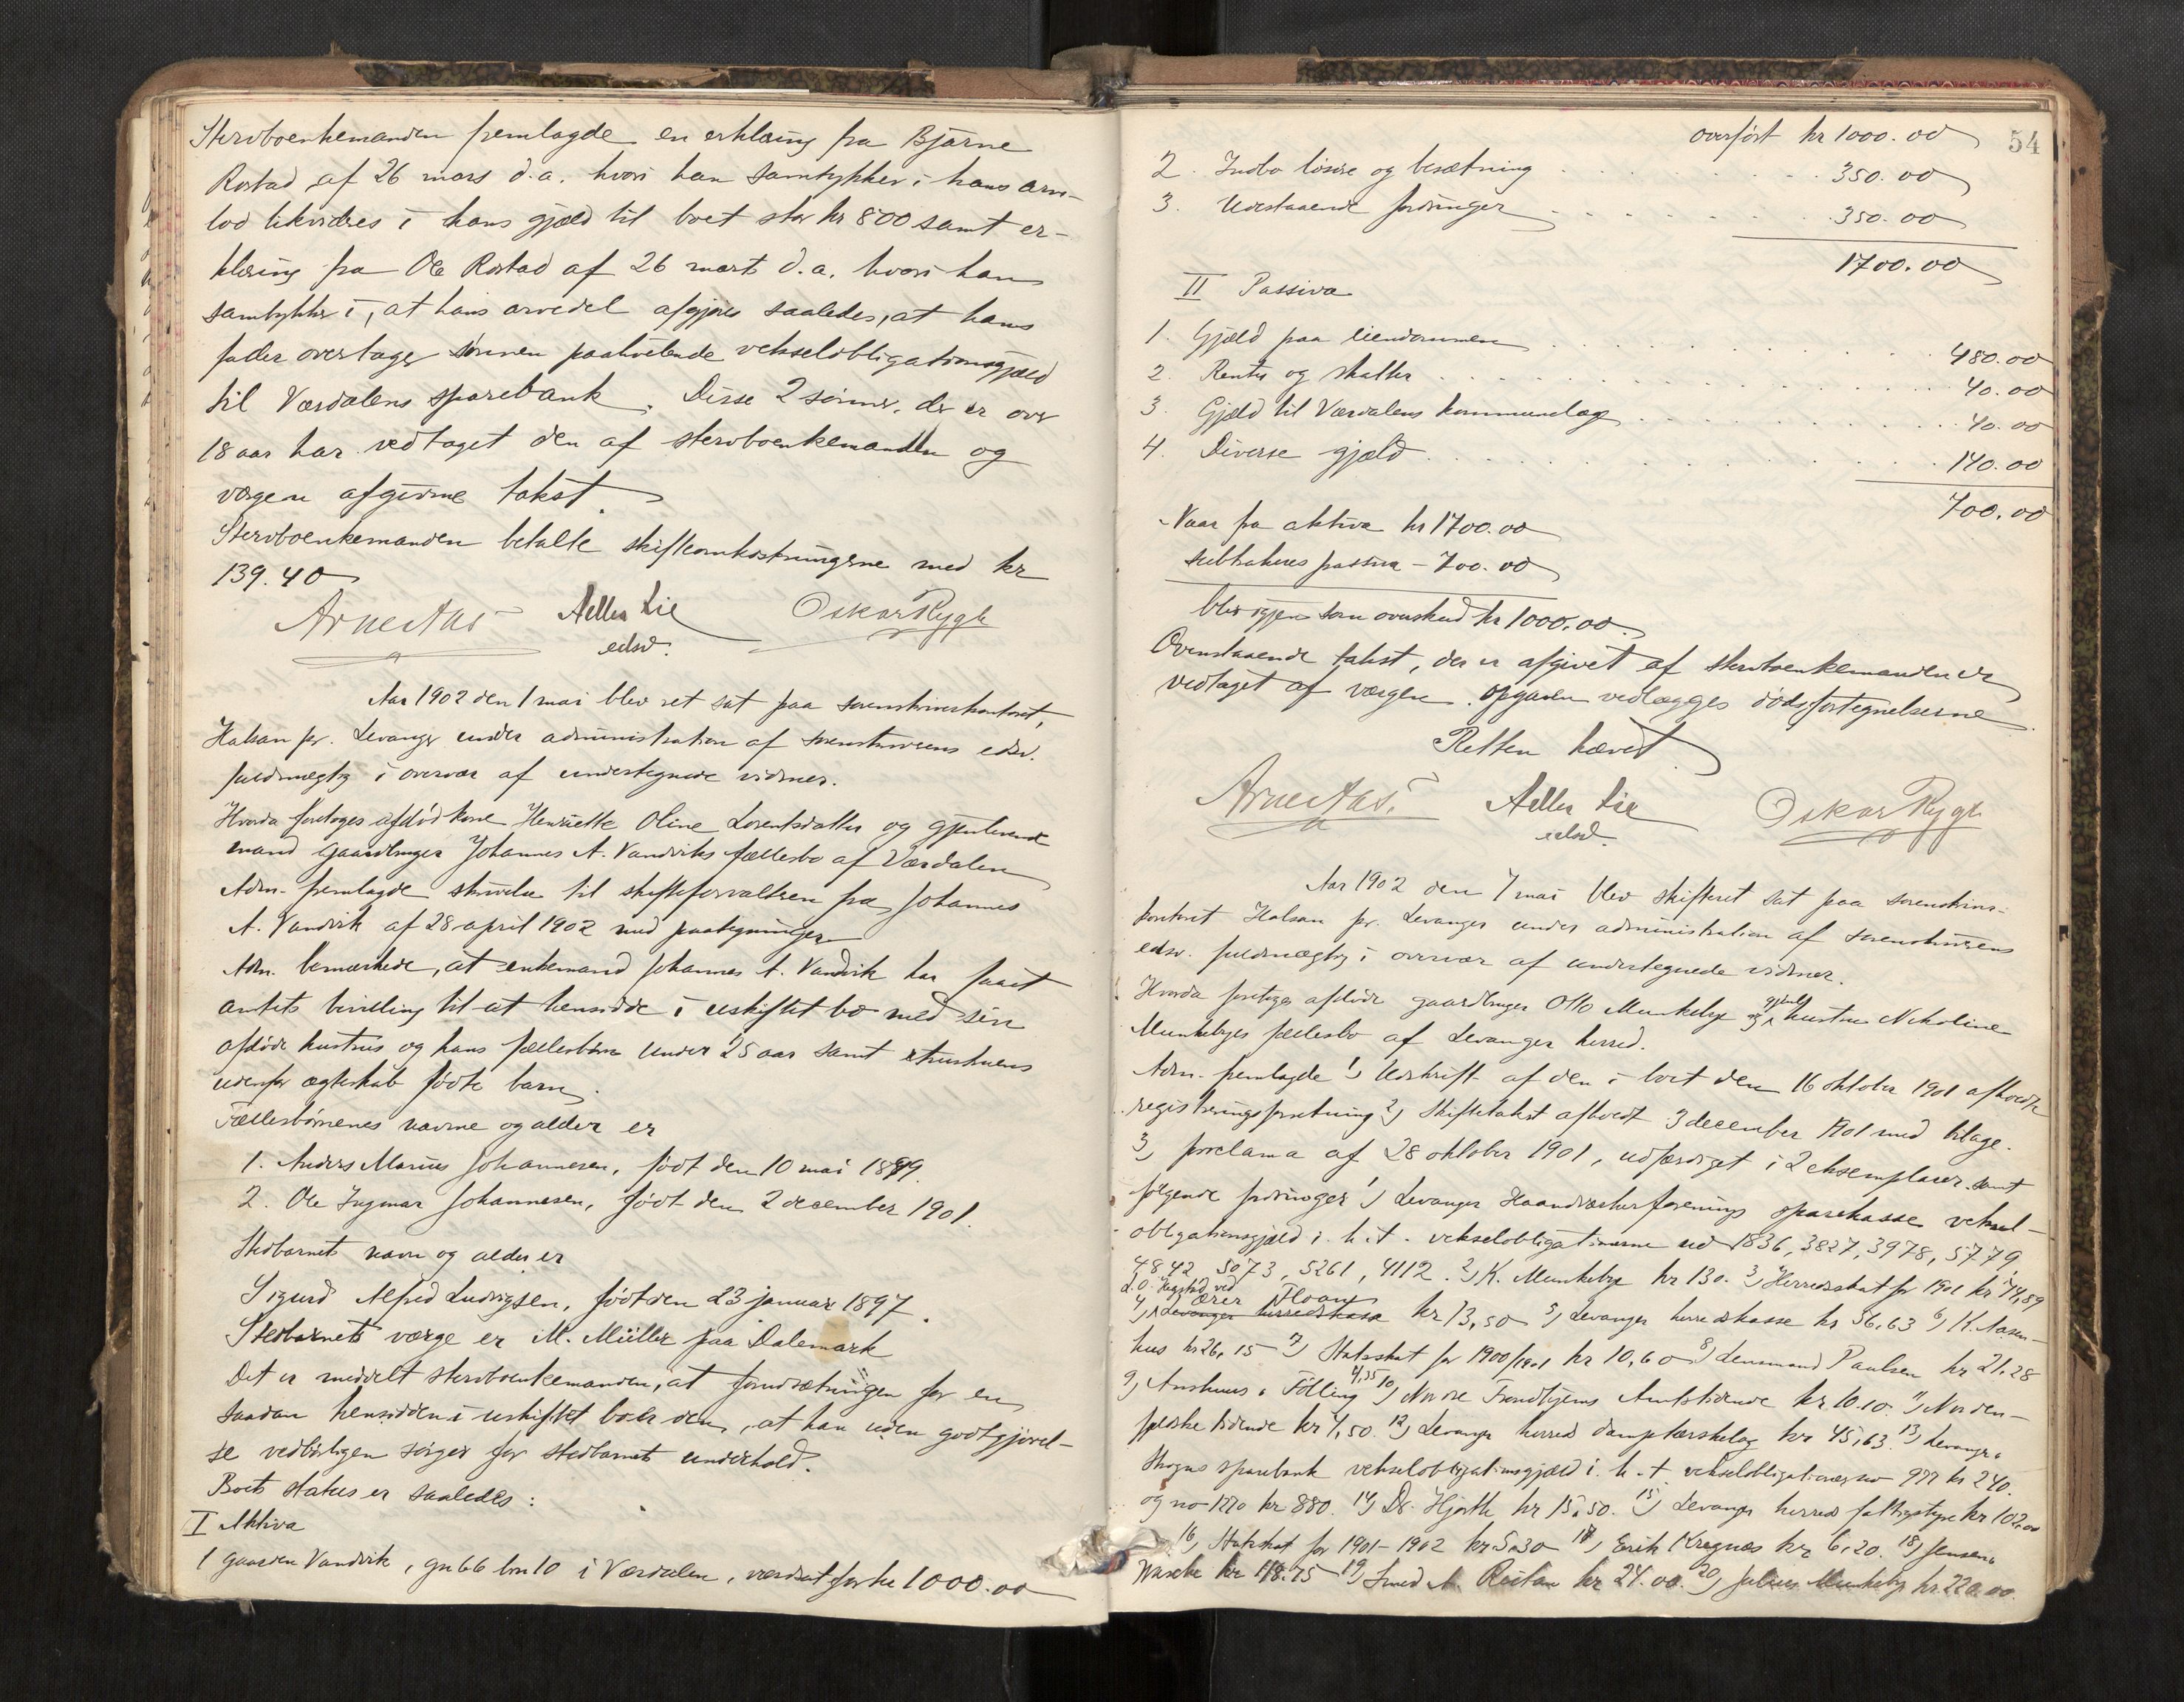 Stervboenkemanden fremlagde en erklæring fra Bjarne
Rostad af 26 mars d.a. hvori han samtykker i hans arve-
lod likvideres i hans gjæld til boet stor kr 800 samt er-
klæring fra Ole Rostad af 26 marts d.a. hvori han
samtykker i, at hans arvedel afgjøres saaledes, at hans
fader overtager sønnen paahvilende vekselobligationsgjæld
til Værdalens sparebank. Disse 2 sønner, der er over
18 aar har vedtaget den af stervboenkemanden og
værgen afgivne takst.
Stervboenkemanden betalte skifteomkostningerne med kr
139.40
Arne Aas Adler Lie Oskar Rygh
edsv.
Aar 1902 den 1 mai blev ret sat paa sorenskriverkontoret,
Halsan pr. Levanger under administration af sorenskriverens edsv.
fuldmægtig i overvær af undertegnede vidner.
Hvorda foretoges afdød kone Henriette Oline Lorentsdatter og gjenlevende
mand gaardbruger Johannes A. Vandviks fællesbo af Værdalen
Adm. fremlagde skrivelse til skifteforvalteren fra Johannes
A. Vandvik af 28 april 1902 med paategninger
Adm. bemærkede, at enkemand Johannes A. Vandvik har faaet
amtets bevilling til at hensidde i uskiftet bo med sin
afdøde hustrus og hans fællesbørn under 25 aar samt hustruens
udenfor ægteskab fødte barn.
Fællesbørnenes navne og alder er
1. Anders Marius Johannesen, født den 10 mai 1899.
2. Ole Ingmar Johannesen, født den 2 december 1901.
Stedbarnets navn og alder er
Sigurd Alfred Ludvigsen, født den 23 januar 1897.
Stedbarnets værge er M. Müller paa Dalemark
Det er meddelt stervboenkemanden, at forudsætningen for en
saadan hensidden i uskiftet bo er den, at han uden godtgjørel-
se vedbørligen sørger for stedbarnets underhold.
Boets status er saaledes:
I Aktiva
1 gaarden Vandvik, gn 66 bn 10 i Værdalen, værdsat for kr 1000.00
54
overført kr 1000.00
2. Indbo løsøre og besætning 350.00
3. Udestaaende fordringer 350.00
1700.00
II Passiva
1. Gjæld paa eiendommen 480.00
2. Renter og skatter 40.00
3. Gjæld til Værdalens kommunelag 40.00
4. Diverse gjæld 140.00
700.00
Naar fra aktiva kr 1700.00
subtraheres passiva - 700.00
blir igjen som overskud kr 1000.00.
Ovenstaaende takst, der er afgivet af stervboenkemanden er
vedtaget af værgen. Opgaven vedlægges dødsfortegnelserne
Retten hævet
Arne Aas. Adler Lie Oskar Rygh
edsv.
Aar 1902 den 7 mai blev skifteret sat paa sorenskriver-
kontoret Halsan pr. Levanger under administration af sorenskriverens
edsv. fuldmægtig i overvær af undertegnede vidner.
Hvorda foretoges afdøde gaardbruger Otto Munkeby og gjenl. hustru Nikoline
Munkebyes fællesbo af Levanger herred.
Adm. fremlagde 1) Udskrift af den i boet den 16 oktober 1901 afholdte
registreringsforretning 2) Skiftetakst afholdt 3 december 1901 med bilage.
3) proclama af 28 oktober 1901, udfærdiget i 2 eksemplarer samt
følgende fordringer 1) Levanger Haandværkerforenings sparekasse veksel-
obligationsgjæld i h.t. vekselobligationerne no 1836, 3827, 3978, 5779,
4842, 5073, 5261, 4112. 2) K. Munkeby kr 130. 3) Herredsskat for 1901 kr 74,89
4) Levanger herredskasse kr 13,50 5) Levanger herredskasse kr 56,63 6) K. Aasen-
hus kr 26,15 7) Statsskat for 1900/1901 kr 10,60 8) Lensmand Paulsen kr 21,28
9) Aushuus & Fölling 4,35 10) Nordre Trondhjems Amtstidende kr 10.10. 11) Norden-
fjelske tidende kr 4,50. 12) Levanger herreds damptærskelag kr 45,63. 13) Levanger &
Skogns sparebank vekselobligationsgjæld i h.t. vekselobligation no 977 kr 240.
og no 1270 kr 880. 14) Dr. Hjorth kr 15.50. 15) Levanger herreds fattigstyre kr 102,00
16) Statsskat for 1901-1902 kr 5.30 17) Erik Kregnæs kr 6,20. 18) Jensen &
kr 118.75 19) Smed A. Reitan kr 24.00. 20) Julius Munkeby kr. 220.00.